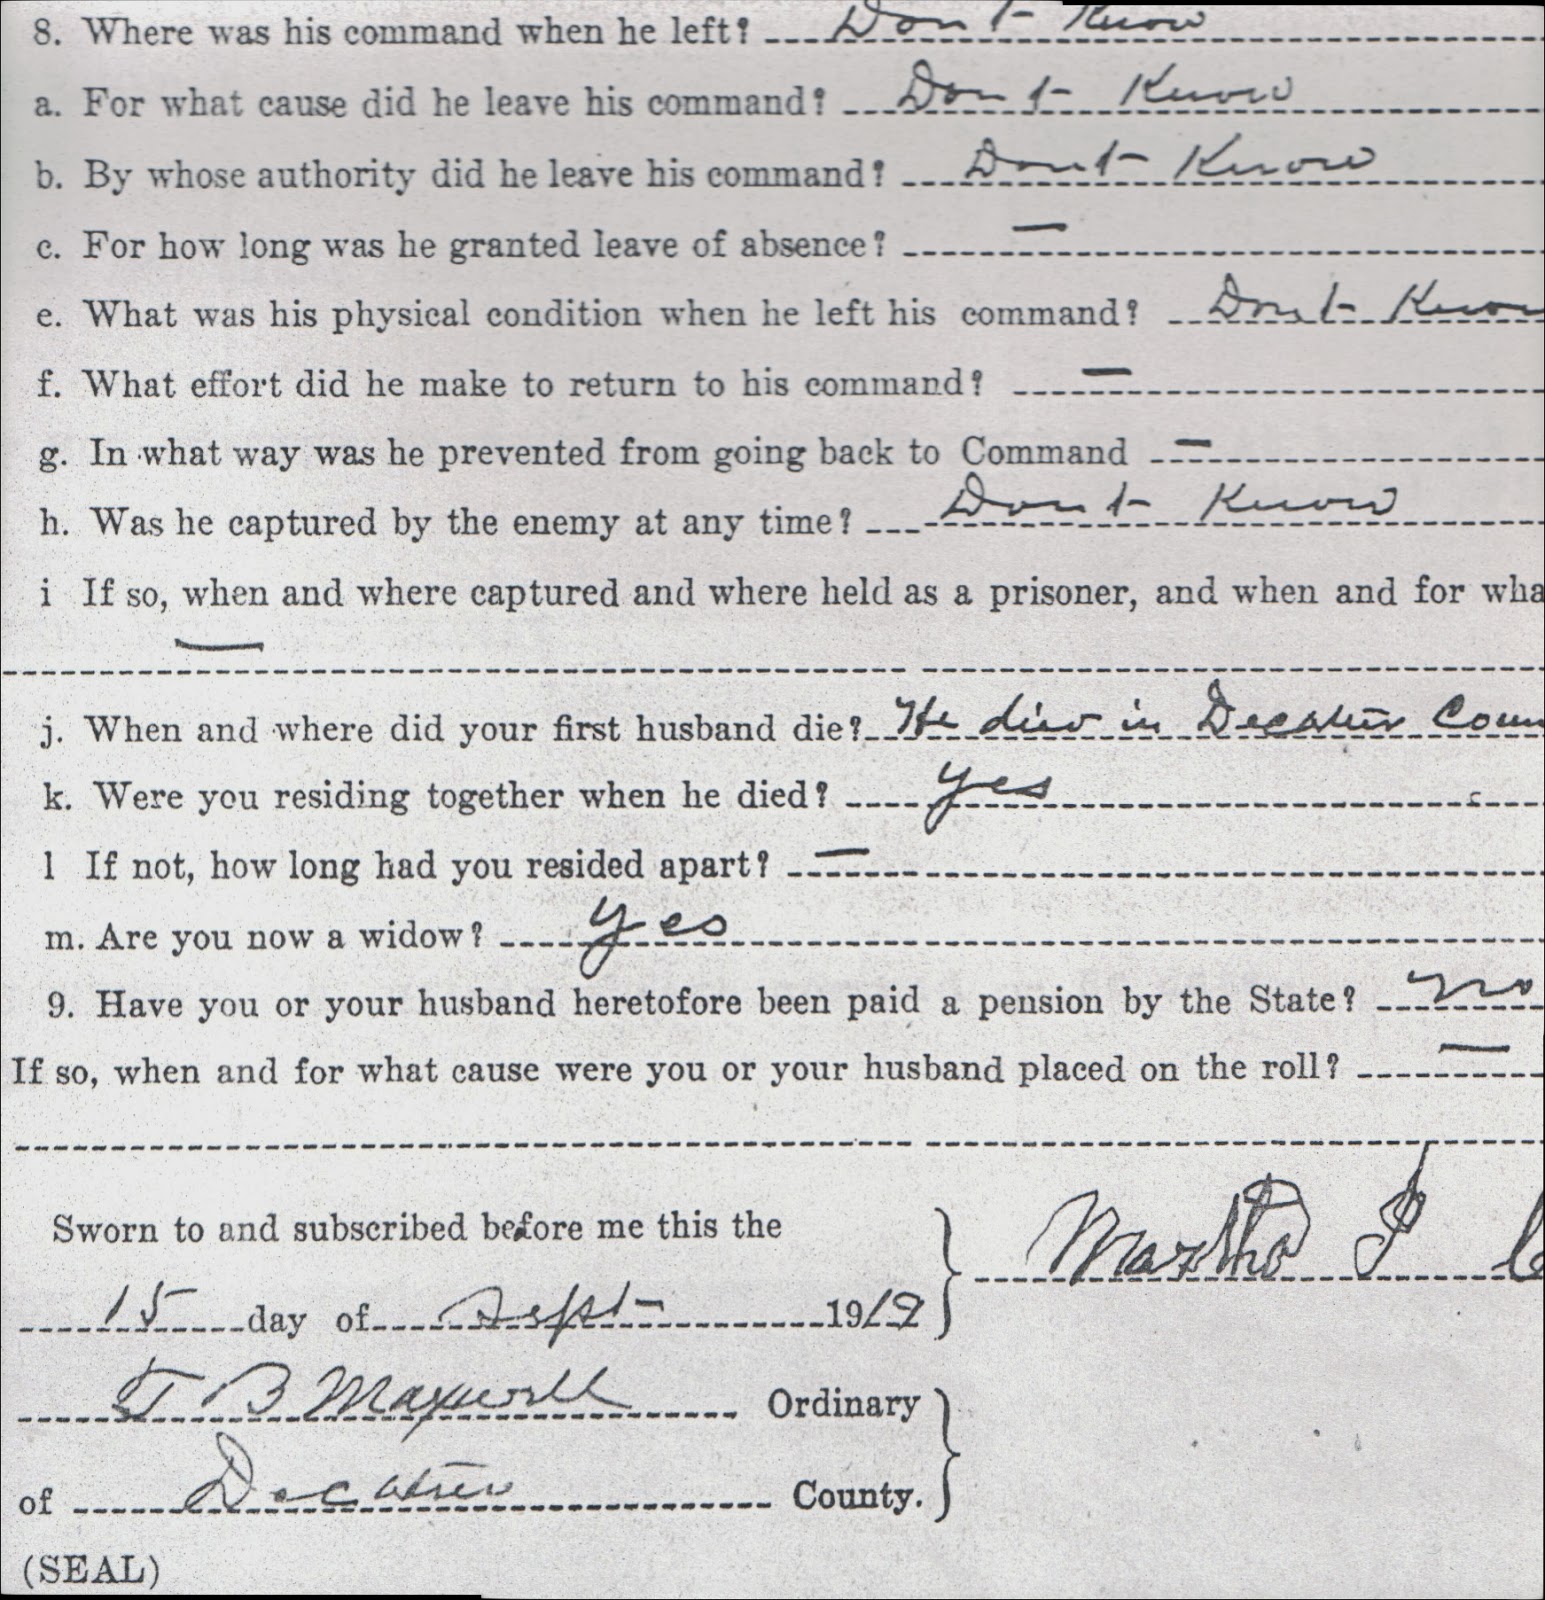 8. Where was his command when he left? Don't Know
a. For what cause did he leave his command? Don't Know
b. By whose authority did he leave his command? Dont Know
c. For how long was he granted leave of absence? —
e. What was his physical condition when he left his command? Dont Know
f. What effort did he make to return to his command? —
g. In what way was he prevented from going back to Command —
h. Was he captured by the enemy at any time? Dont Know
i If so, when and where captured and where held as a prisoner, and when and for wha
—
j. When and where did your first husband die? He died in Decatur Coun
k. Were you residing together when he died? yes
l If not, how long had you resided apart? —
m. Are you now a widow? yes
9. Have you or your husband heretofore been paid a pension by the State? no
If so, when and for what cause were you or your husband placed on the roll? —
Sworn to and subscribed before me this the
15 day of Sept 1919
Martha J C
T B Maxwell Ordinary
of Decatur County.
(SEAL)